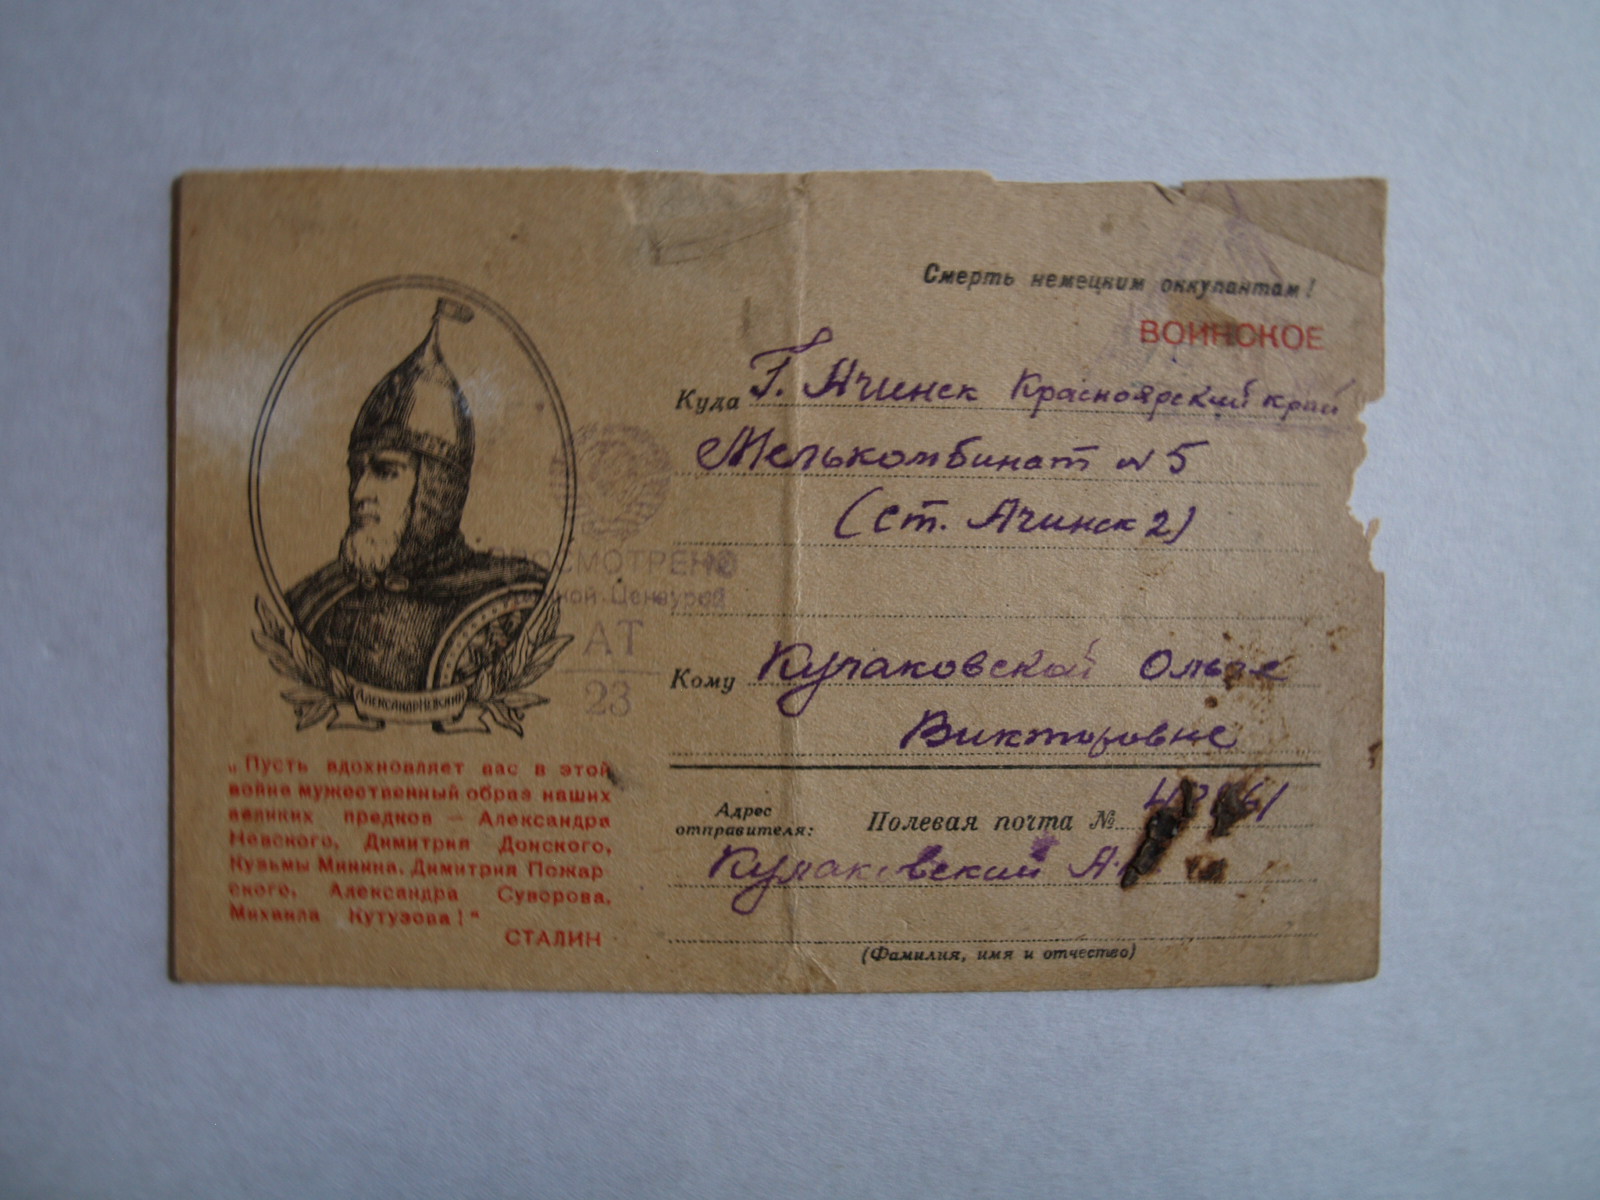 Смерть немецким оккупантам!
ВОИНСКОЕ
Куда Г. Ачинск Красноярский край
Мелькомбинат № 5
(ст. Ачинск 2)
Кому Кулаковской Ольге
Викторовне
Адрес отправителя: Полевая почта №
Кулаковский А.
(Фамилия, имя и отчество)
АЛЕКСАНДР НЕВСКИЙ
ПРОСМОТРЕНО
Военной Цензурой
АТ
23
„Пусть вдохновляет вас в этой
войне мужественный образ наших
великих предков — Александра
Невского, Димитрия Донского,
Кузьмы Минина, Димитрия Пожар
ского, Александра Суворова,
Михаила Кутузова!“
СТАЛИН